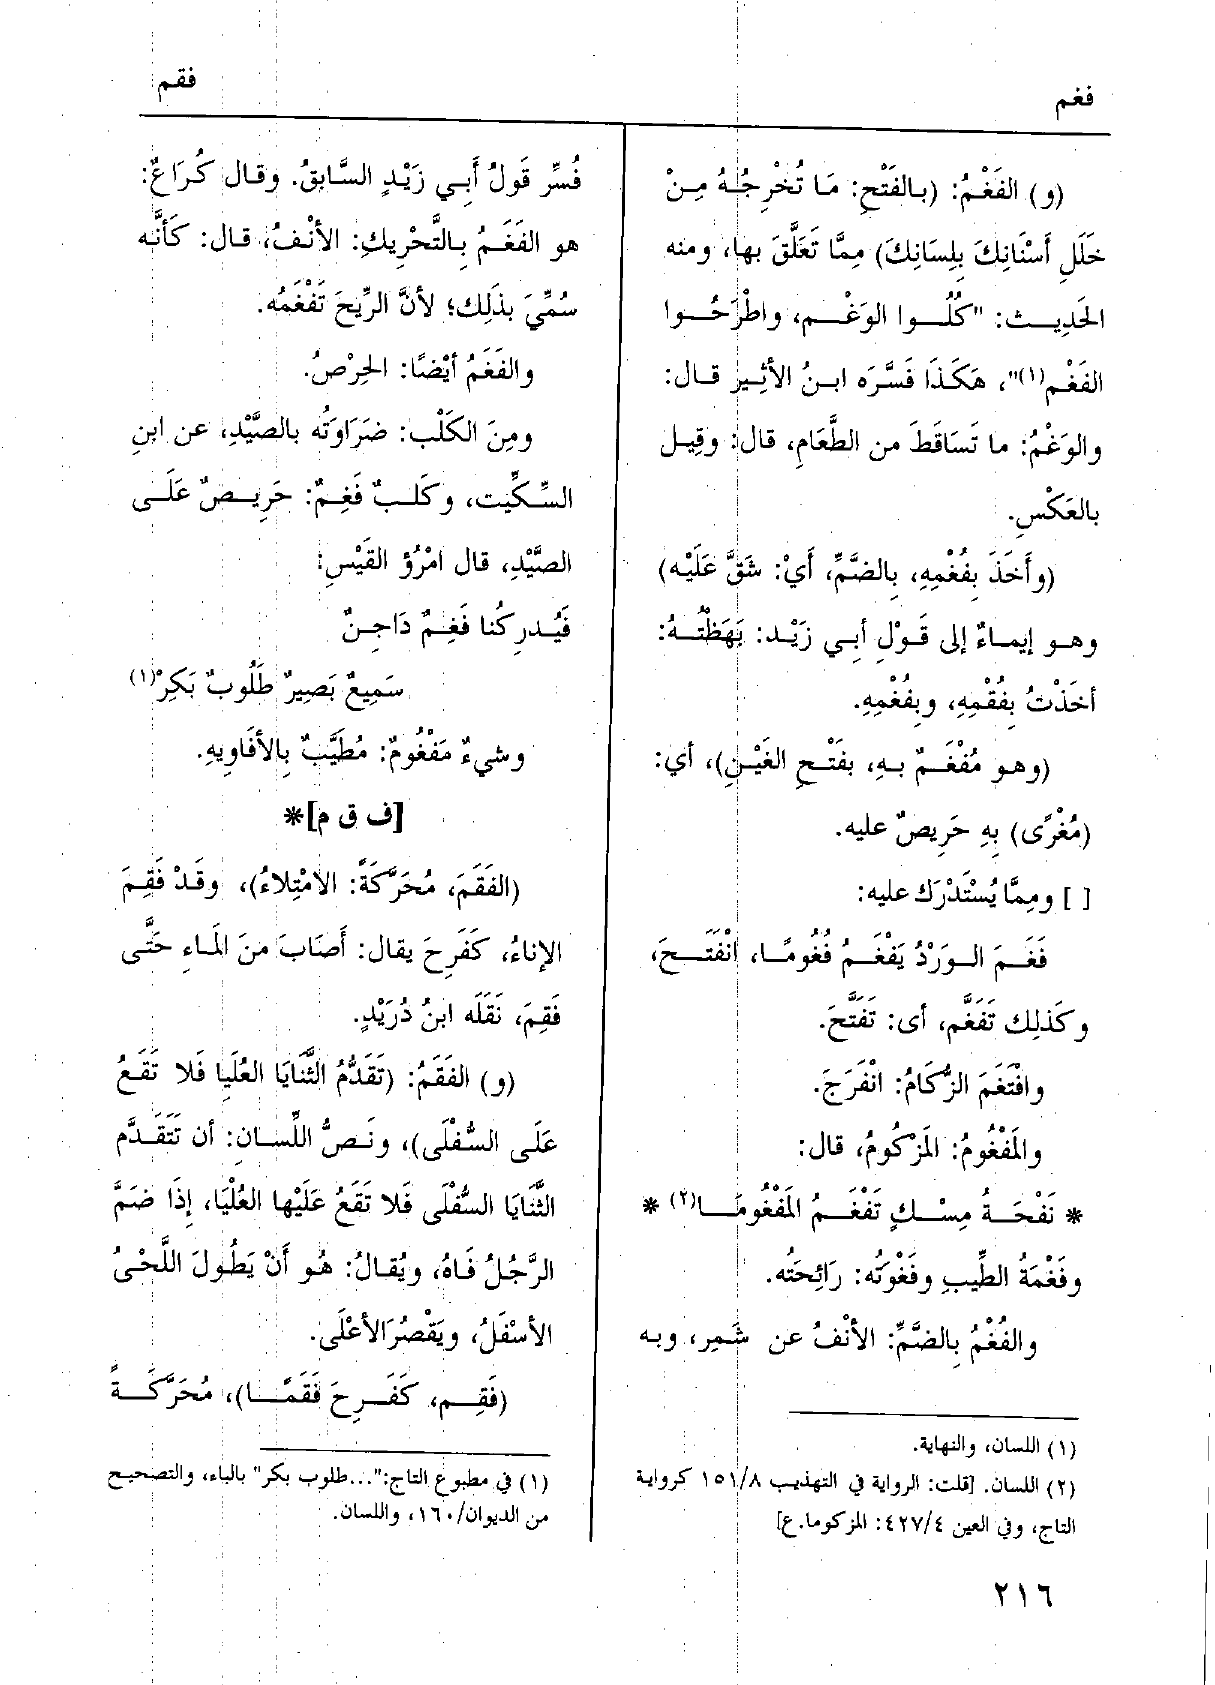 فغم
فقم
(و) الفَغْمُ: (بـالفَتْحِ: مَـا تُخْرِجُـهُ مِـنْ
خَلَلِ أَسْنَانِكَ بِلِسَانِكَ) مِمَّا تَعَلَّقَ بها، ومنه
الحَدِيـث: "كُلُـوا الوَغْـم، واطْرَحُـوا
الفَغْم(١)"، هَكَـذَا فَسَّرَه ابـنُ الأثِـير قـال:
والوَغْمُ: ما تَسَاقَطَ من الطَّعَامِ، قال: وقِيـل
بالعَكْسِ.
(وأَخَذَ بِفُغْمِهِ، بِالضَّمِّ، أَيْ: شَقَّ عَلَيْه)
وهـو إيمـاءٌ إلى قَـوْلِ أبـي زَيْـد: بَهَظْتُـهُ:
أخَذْتُ بِفُقْمِهِ، وبِفُغْمِهِ.
(وهـو مُفْغَـمٌ بـهِ، بفَتْـحِ الغَيْـنِ)، أي:
(مُغْرًى) بِهِ حَرِيصٌ عليه.
[ ] ومِمَّا يُسْتَدْرَك عليه:
فَغَـمَ الـوَرْدُ يَفْغَـمُ فُغُومًـا، انْفَتَـحَ،
وكَذلِك تَفَغَّم، أى: تَفَتَّحَ.
وافْتَغَمَ الزُّكَامُ: انْفَرَجَ.
والمَفْغُومُ: المَزْكُومُ، قال:
* نَفْحَـةُ مِسْـكٍ تَفْغَـمُ المَفْغُومَـا(٢) *
وفَغْمَةُ الطِّيبِ وفَغْوَتُه: رَائِحَتُه.
والفُغْمُ بِالضَّمِّ: الأنْفُ عن شَمِر، وبـه
(١) اللسان، والنهاية.
(٢) اللسان. [قلت: الرواية في التهذيب ١٥١/٨ كرواية
التاج، وفي العين ٤٢٧/٤: المزكوما.ع]
فُسِّر قَولُ أَبِـي زَيْـدٍ السَّابقُ. وقـال كُـرَاعٌ:
هو الفَغَـمُ بِـالتَّحْرِيكِ: الأنْـفُ، قـال: كَأنَّـه
سُمِّيَ بذَلِك؛ لأنَّ الرِّيحَ تَفْغَمُه.
والفَغَمُ أيْضًا: الحِرْصُ.
ومِنَ الكَلْب: ضَرَاوَتُه بالصَّيْدِ، عن ابنِ
السِّـكِّيت، وكَلـبٌ فَغِـمٌ: حَرِيـصٌ عَلَـى
الصَّيْدِ، قال امْرُؤ القَيْسِ:
فَيُـدرِكُنا فَغِـمٌ دَاجِـنٌ
سَمِيعٌ بَصِيرٌ طَلُوبٌ بَكِرْ(١)
وشيءٌ مَفْغُومٌ: مُطَيَّبٌ بِالأفَاوِيهِ.
[ف ق م]*
(الفَقَمَ، مُحَرَّكَةً: الامْتِلاءُ)، وقَـدْ فَقِـمَ
الإناءُ، كَفَرِحَ يقال: أَصَابَ منَ المَاءِ حَتَّى
فَقِمَ، نَقَلَه ابنُ دُرَيْدٍ.
(و) الفَقَمُ: (تَقَدُّمُ الثَّنَايَا العُلَيا فَلا تَقَعُ
عَلَـى السُّفْلَى)، ونَـصُّ اللِّسَـانِ: أن تَتَقَـدَّم
الثَّنَايَا السُّفْلَى فَلا تَقَعُ عَلَيْها العُلْيَا، إِذَا ضَمَّ
الرَّجُلُ فَاهُ، ويُقالُ: هُـو أَنْ يَطُولَ اللَّحْيُ
الأسْفَلُ، ويَقْصُرَ الأعْلَى.
(فَقِـم، كَفَـرِحَ فَقَمًـا)، مُحَرَّكَـةً
(١) في مطبوع التاج:"...طلوب بكر" بالباء، والتصحيح
من الديوان/١٦٠، واللسان.
٢١٦